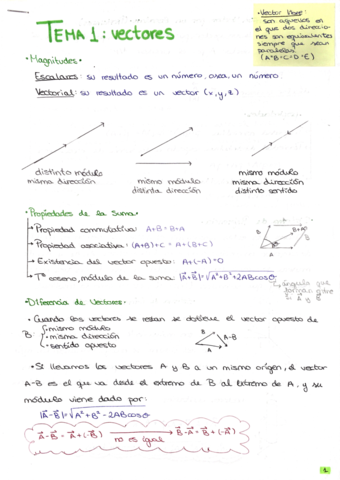 TEMA 1: vectores
• Vector libre:
son aquellos en
el que dos direccio-
nes son equivalentes
siempre que sean
paralelas.
(A=B=C=D=E)
• Magnitudes •
Escalares: su resultado es un número, osea, un número
Vectorial: su resultado es un vector (x, y, z)
distinto módulo
misma dirección
mismo módulo
distinta dirección
mismo módulo
misma dirección
distinto sentido
• Propiedades de la Suma •
→ Propiedad conmutativa: A+B=B+A
→ Propiedad asociativa: (A+B)+C = A+(B+C)
→ Existencia del vector opuesto: A+(-A)=0
→ Tª coseno, módulo de la suma |A⃗+B⃗|=√A²+B²+2ABcosθ
ángulo que
forman entre
sí A y B
• Diferencia de Vectores •
• Cuando los vectores se restan se obtiene el vector opuesto de
B
mismo módulo
• misma dirección
• sentido opuesto
B
A-B
A
• Si llevamos los vectores A y B a un mismo origen, el vector
A-B es el que va desde el extremo de B al extremo de A, y su
módulo viene dado por:
|A⃗-B⃗|=√A²+B²-2ABcosθ
A⃗-B⃗ = A⃗+(-B⃗) → B⃗-A⃗=B⃗+(-A⃗)
no es igual
1.